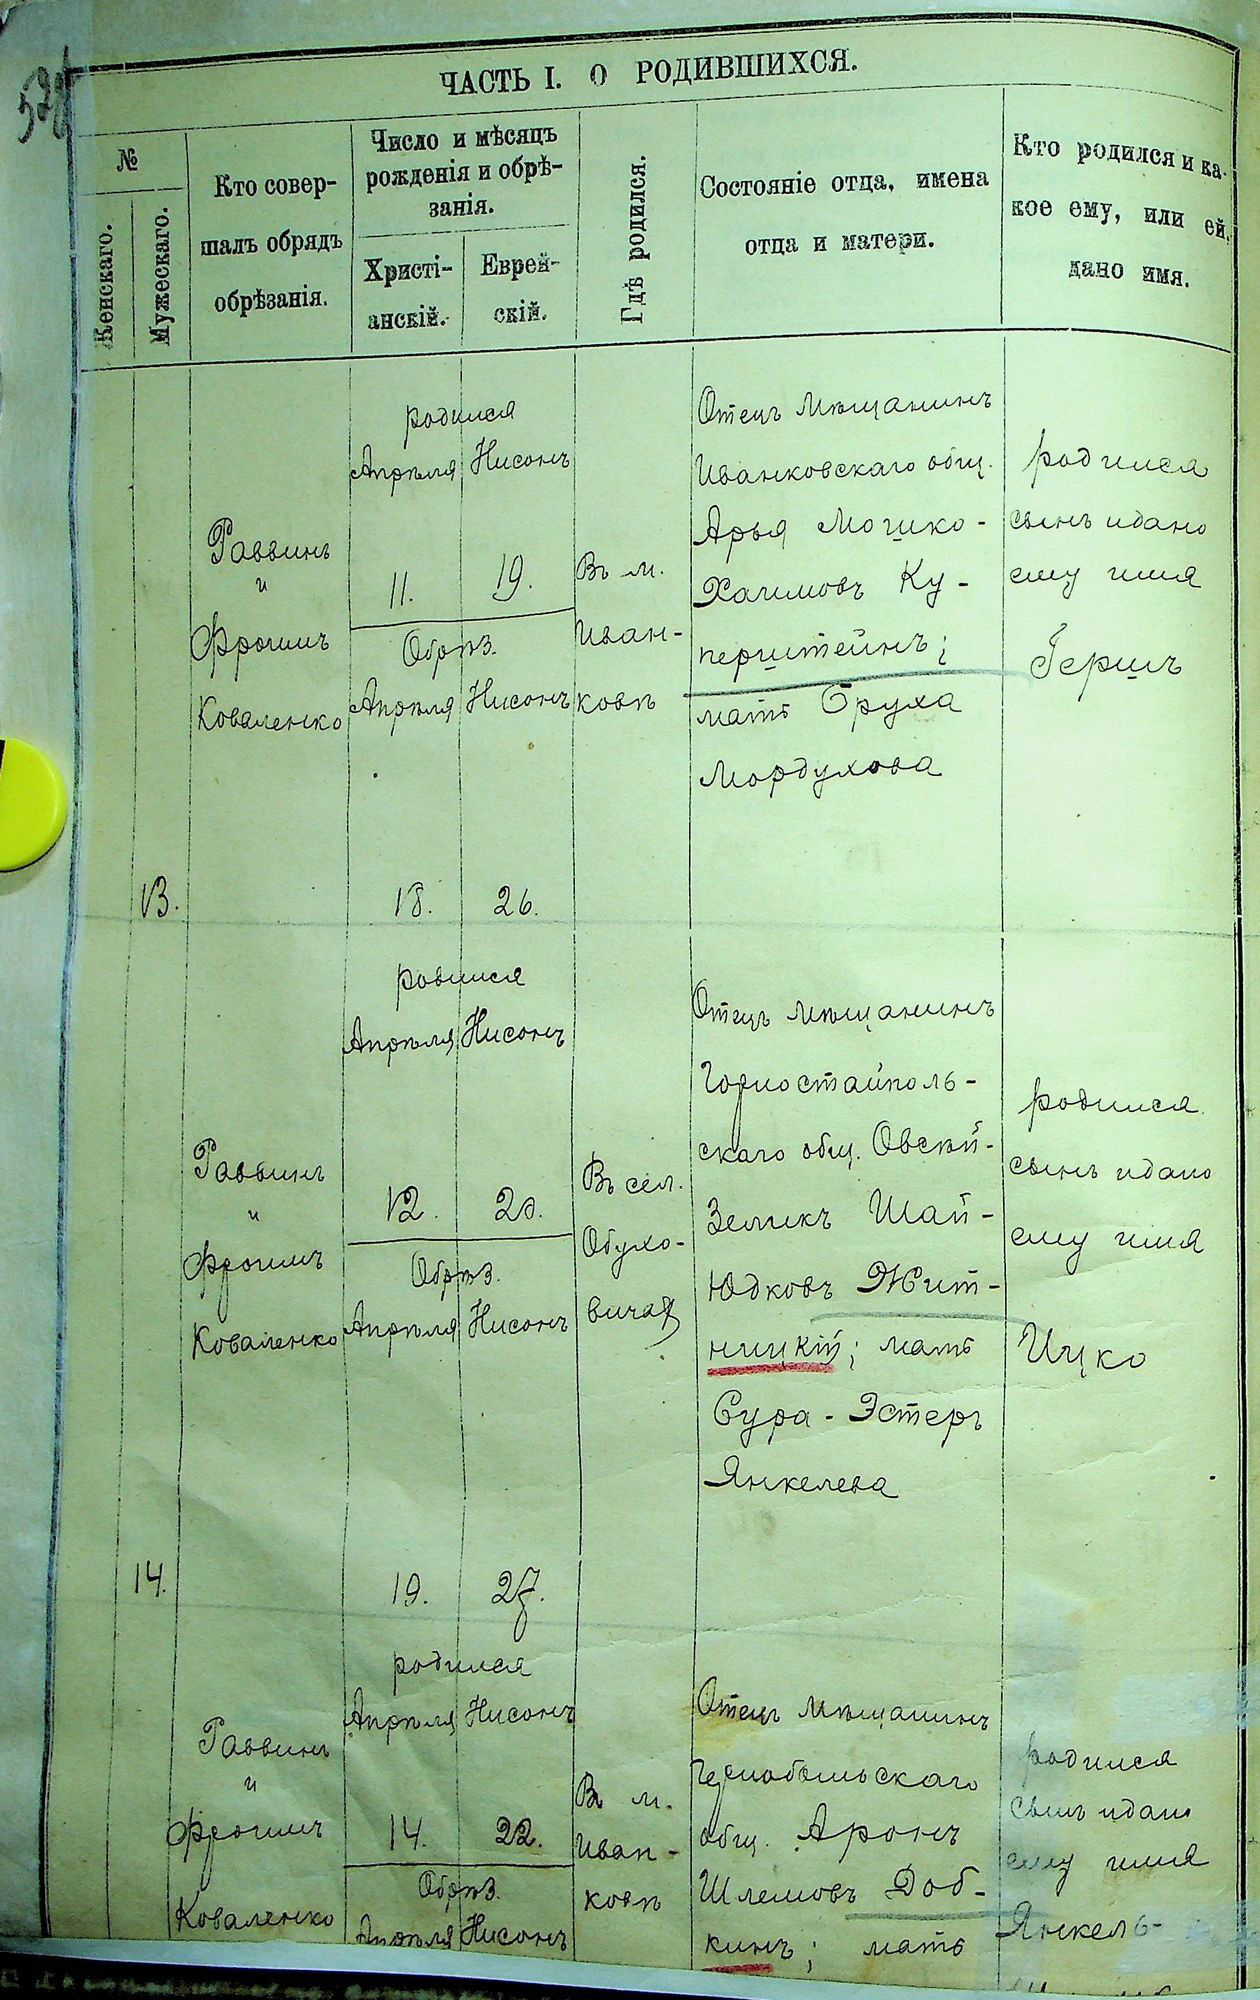 528
ЧАСТЬ I. О РОДИВШИХСЯ.
№
Женскаго.
Мужескаго.
Кто совер-
шалъ обрядъ
обрѣзанія.
Число и мѣсяцъ
рожденія и обрѣ-
занія.
Христі-
анскій.
Еврей-
скій.
Гдѣ родился.
Состояніе отца, имена
отца и матери.
Кто родился и ка-
кое ему, или ей,
дано имя.
13.
Раввинъ
и
Фроимъ
Коваленко
родился
Апрѣля Нисонъ
11. 19.
Обрѣз.
Апрѣля Нисонъ
18. 26.
Въ м.
Иван-
ковѣ
Отецъ мѣщанинъ
Иванковскаго общ.
Арья Мошко-
Хаимовъ Ку-
перштейнъ;
мать Бруха
Мордухова
родился
сынъ и дано
ему имя
Гершъ
14.
Раввинъ
и
Фроимъ
Коваленко
родился
Апрѣля Нисонъ
12. 20.
Обрѣз.
Апрѣля Нисонъ
19. 27.
Въ сел.
Обухо-
вичах
Отецъ мѣщанинъ
Горностайполь-
скаго общ. Овсѣй-
Зеликъ Шай-
Юдковъ Жит-
ницкій; мать
Сура-Эстеръ
Янкелева
родился
сынъ и дано
ему имя
Ицко
Раввинъ
и
Фроимъ
Коваленко
родился
Апрѣля Нисонъ
14. 22.
Обрѣз.
Апрѣля Нисонъ
Въ м.
Иван-
ковѣ
Отецъ мѣщанинъ
Чернобыльскаго
общ. Аронъ
Шлемовъ Доб-
кинъ; мать
родился
сынъ и дано
ему имя
Янкель-